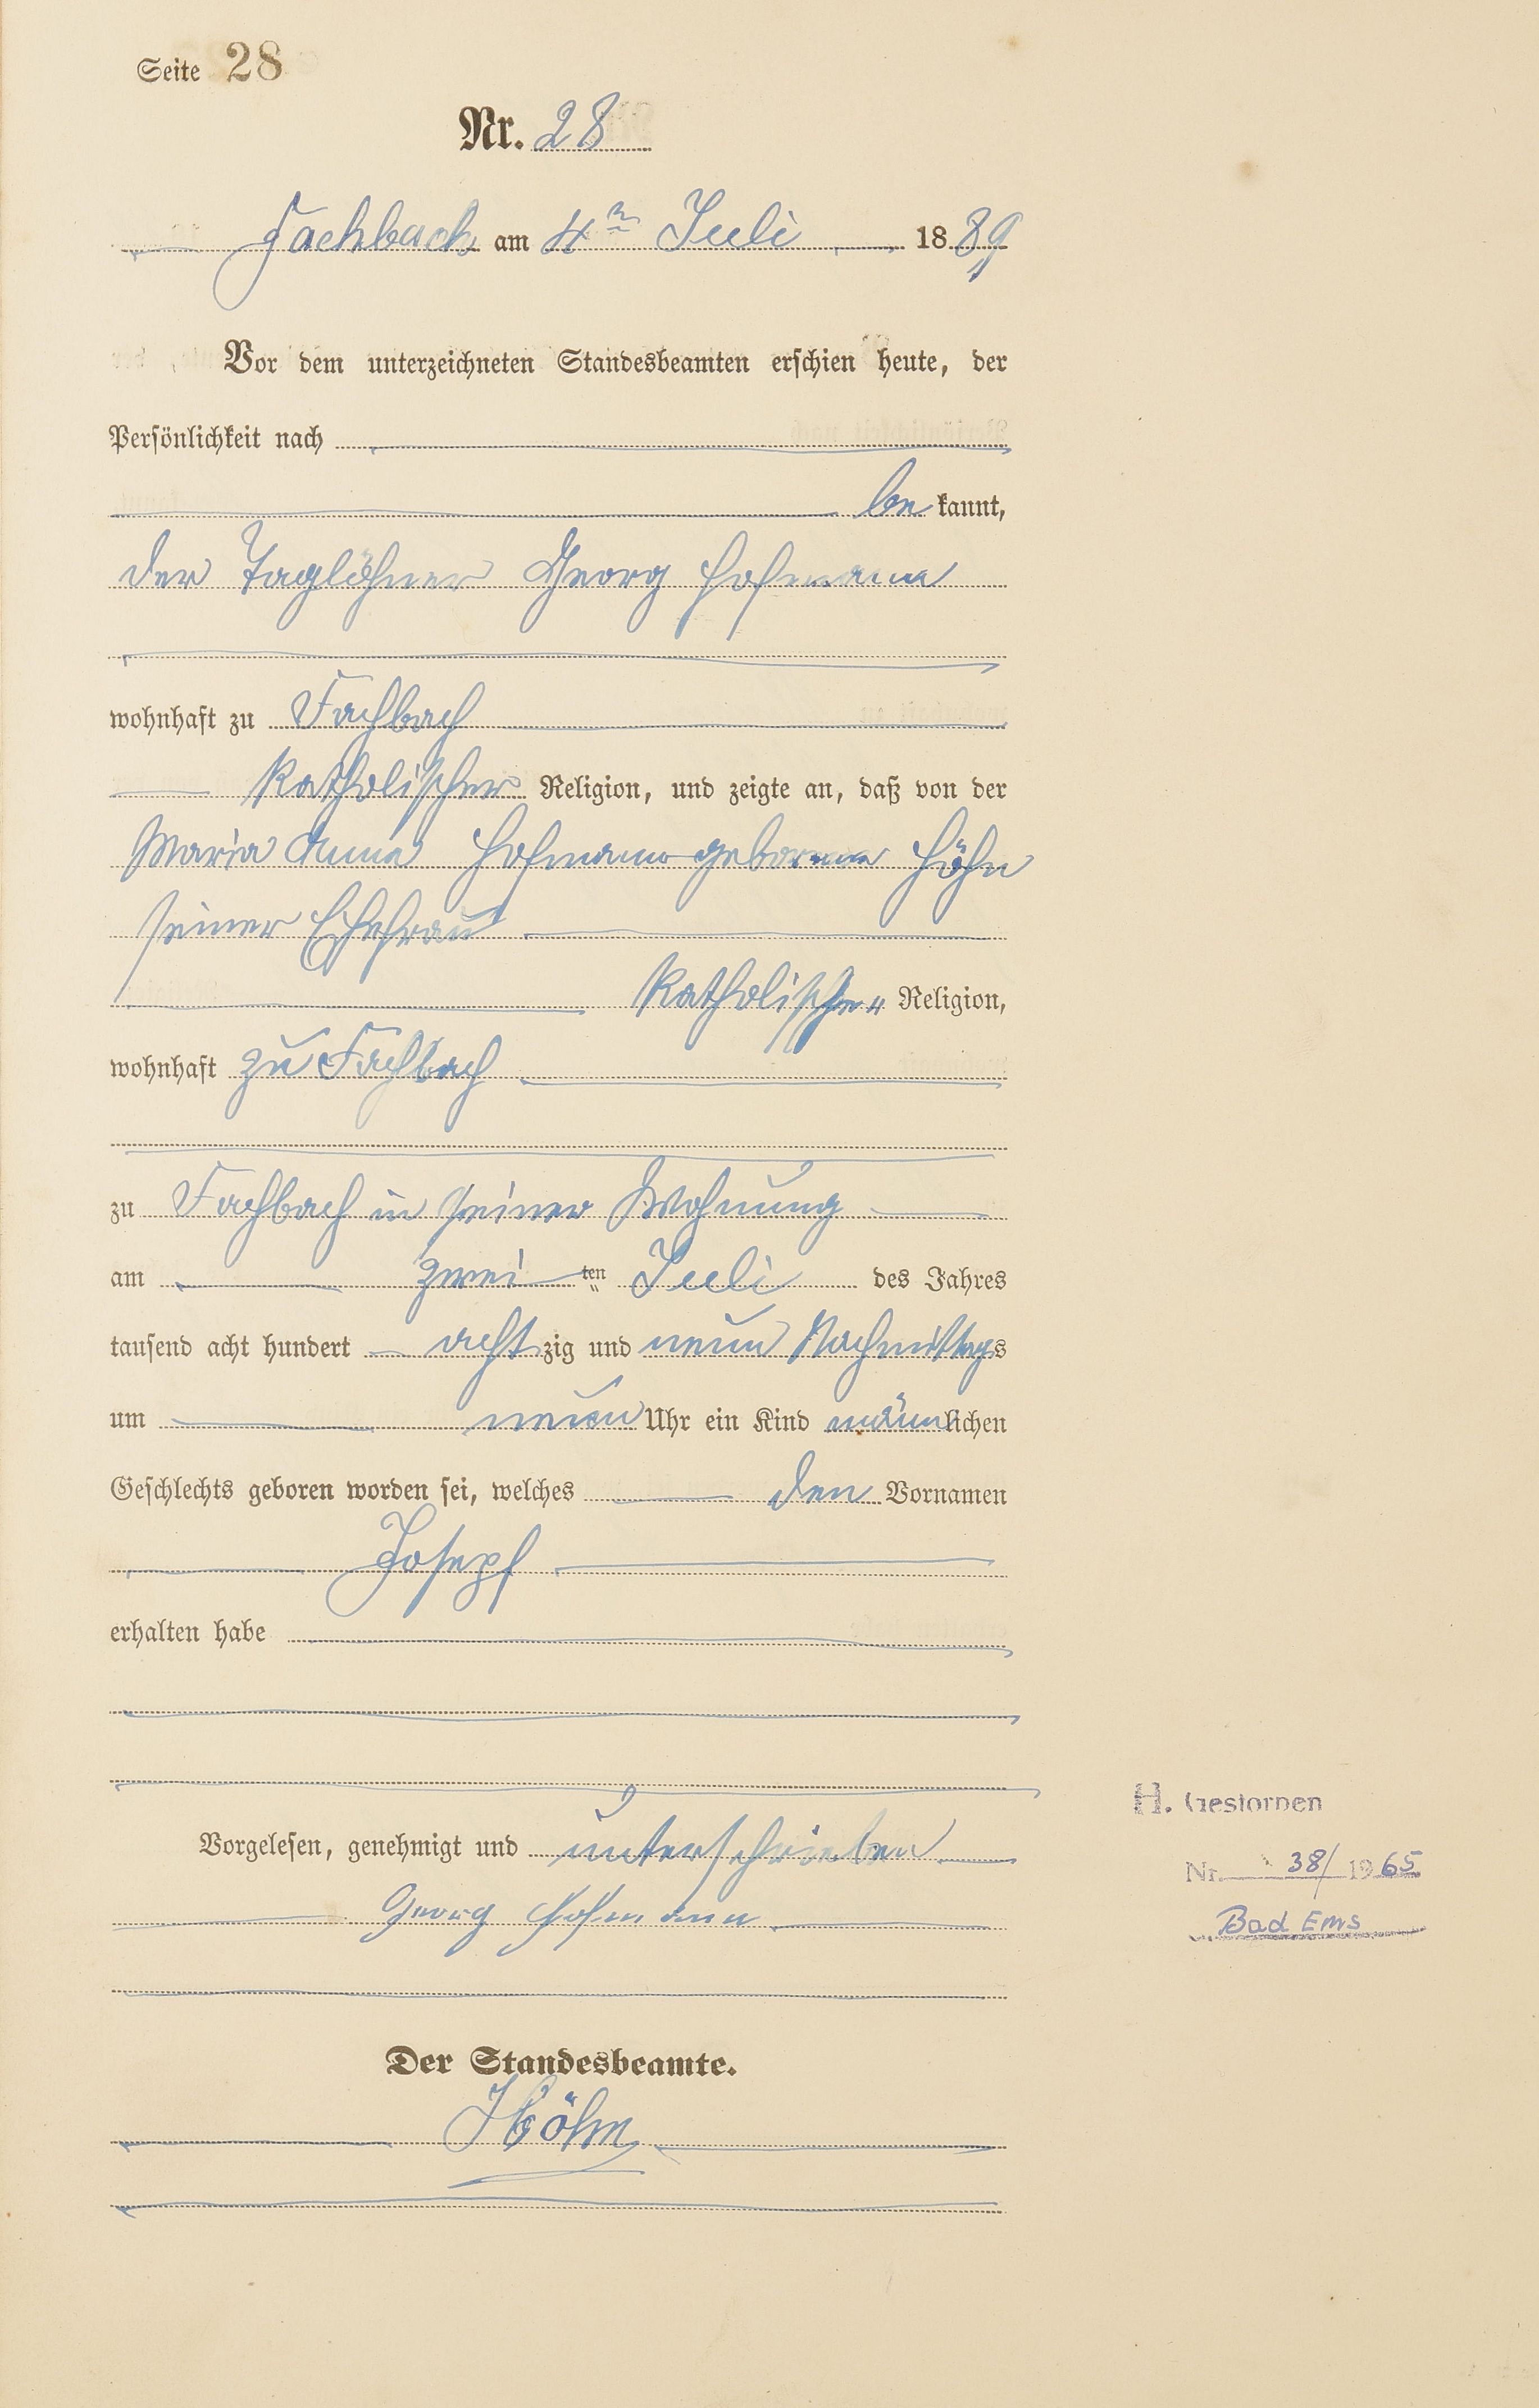 Seite 28
Nr. 28
Fachbach am 4ten Juli 1889
Vor dem unterzeichneten Standesbeamten erschien heute, der
Persönlichkeit nach
be kannt,
der Taglöhner Georg Hofmann
wohnhaft zu Fachbach
katholischer Religion, und zeigte an, daß von der
Maria Anna Hofmann geborene Höhn
seiner Ehefrau
katholischer Religion,
wohnhaft zu Fachbach
zu Fachbach in seiner Wohnung
am zwei ten Juli des Jahres
tausend acht hundert acht zig und neun Nachmittags
um neun Uhr ein Kind männlichen
Geschlechts geboren worden sei, welches den Vornamen
Joseph
erhalten habe
Vorgelesen, genehmigt und unterschrieben
Georg Hofmann
Der Standesbeamte.
Höhn
H. Gestorben
Nr. 38/1965
Bad Ems